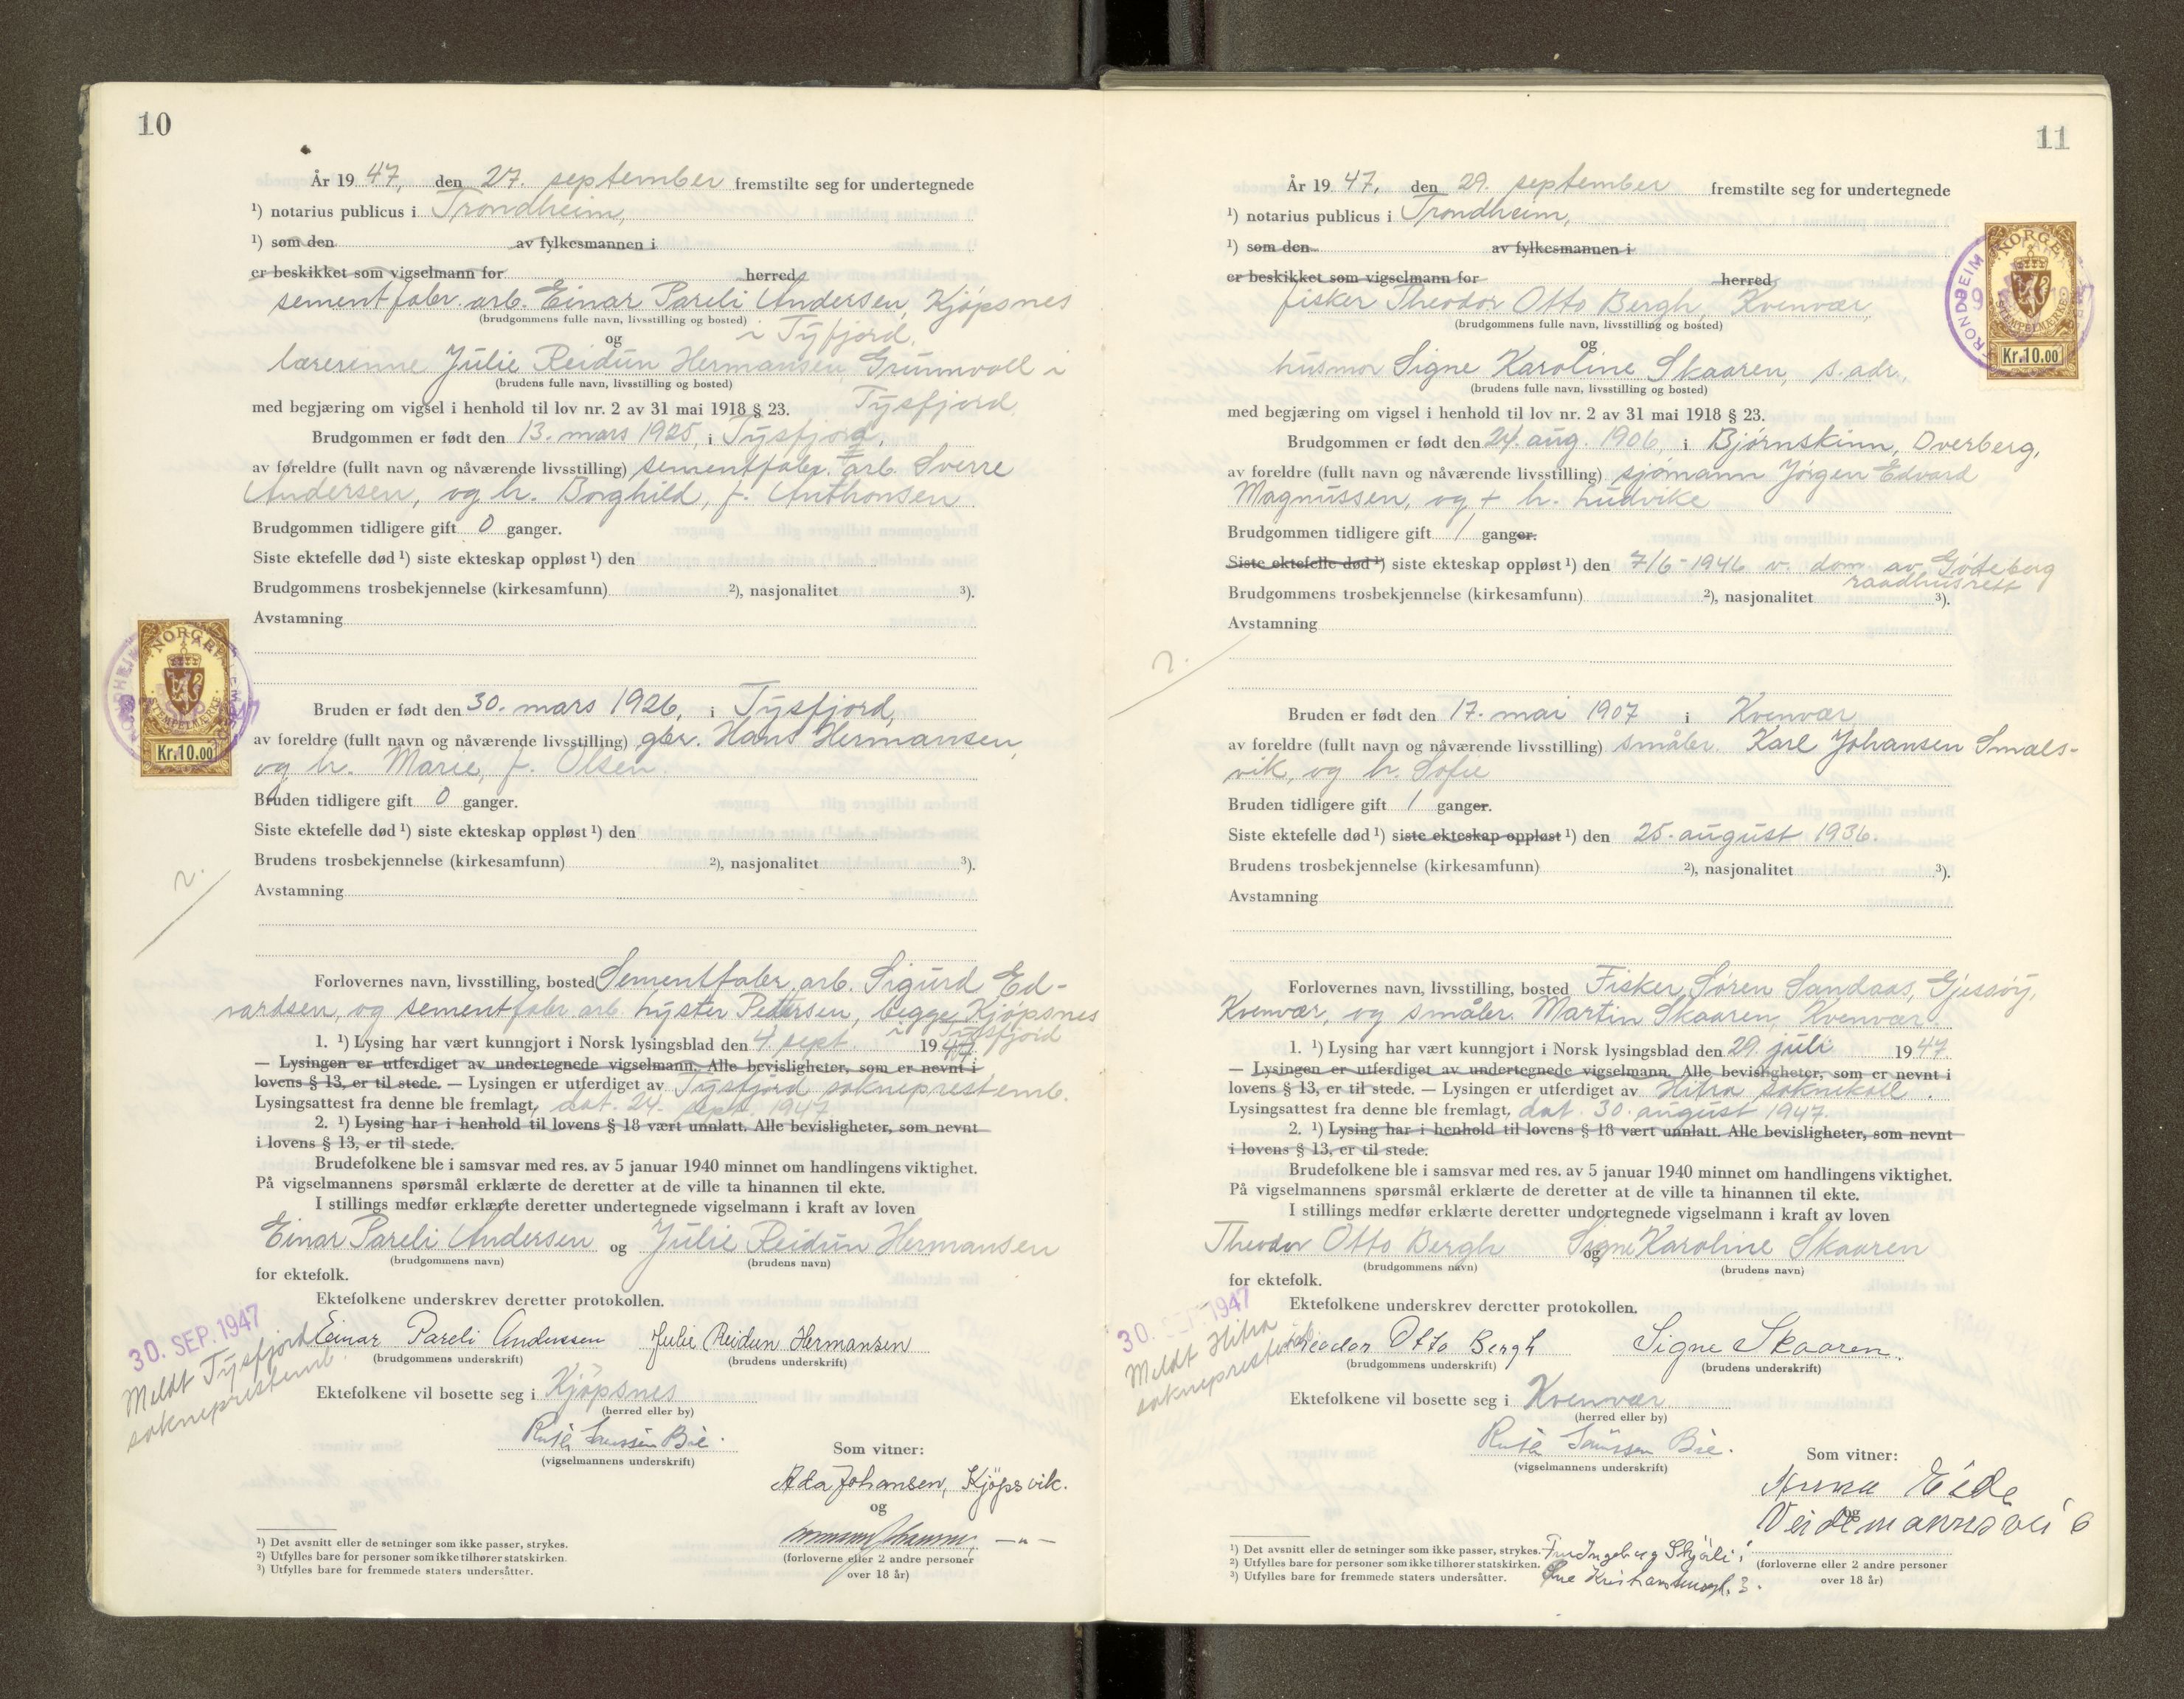 10
År 19 47, den 27. september fremstilte seg for undertegnede
¹) notarius publicus i Trondheim,
¹) som den av fylkesmannen i
er beskikket som vigselmann for herred
sementfabr. arb. Einar Pareli Andersen, Kjøpsnes
(brudgommens fulle navn, livsstilling og bosted)
i Tyfjord.
og
lærerinne Julie Reidun Hermansen, Grunnvoll i
(brudens fulle navn, livsstilling og bosted)
med begjæring om vigsel i henhold til lov nr. 2 av 31 mai 1918 § 23. Tysfjord.
Brudgommen er født den 13. mars 1925, i Tysfjord,
av foreldre (fullt navn og nåværende livsstilling) sementfabr. arb. Sverre
Andersen, og h. Borghild, f. Anthonsen
Brudgommen tidligere gift 0 ganger.
Siste ektefelle død ¹) siste ekteskap oppløst ¹) den
Brudgommens trosbekjennelse (kirkesamfunn) ²), nasjonalitet ³).
Avstamning
NORGE
STEMPELMERKE
Kr.10.00
Bruden er født den 30. mars 1926, i Tysfjord,
av foreldre (fullt navn og nåværende livsstilling) gbr. Hans Hermansen,
og h. Marie, f. Olsen.
Bruden tidligere gift 0 ganger.
Siste ektefelle død ¹) siste ekteskap oppløst ¹) den
Brudens trosbekjennelse (kirkesamfunn) ²), nasjonalitet ³).
Avstamning
Forlovernes navn, livsstilling, bosted Sementfabr. arb. Sigurd Ed-
vardsen, og sementfabr. arb. Lyster Pettersen, begge Kjøpsnes
i Tysfjord
1. ¹) Lysing har vært kunngjort i Norsk lysingsblad den 4. sept. 19 47.
— Lysingen er utferdiget av undertegnede vigselmann. Alle bevisligheter, som er nevnt i
lovens § 13, er til stede. — Lysingen er utferdiget av Tysfjord sokneprestemb.
Lysingsattest fra denne ble fremlagt, dat. 24. sept. 1947
2. ¹) Lysing har i henhold til lovens § 18 vært unnlatt. Alle bevisligheter, som nevnt
i lovens § 13, er til stede.
Brudefolkene ble i samsvar med res. av 5 januar 1940 minnet om handlingens viktighet.
På vigselmannens spørsmål erklærte de deretter at de ville ta hinannen til ekte.
I stillings medfør erklærte deretter undertegnede vigselmann i kraft av loven
Einar Pareli Andersen og Julie Reidun Hermansen
(brudgommens navn) (brudens navn)
for ektefolk.
Ektefolkene underskrev deretter protokollen.
30. SEP. 1947
Meldt Tysfjord
sokneprestemb.
Einar Pareli Anderssen Julie Reidun Hermansen
(brudgommens underskrift) (brudens underskrift)
Ektefolkene vil bosette seg i Kjøpsnes
(herred eller by)
(vigselmannens underskrift)
Som vitner:
Ada Johansen, Kjøpsvik.
og
— " —
(forloverne eller 2 andre personer
over 18 år)
¹) Det avsnitt eller de setninger som ikke passer, strykes.
²) Utfylles bare for personer som ikke tilhører statskirken.
³) Utfylles bare for fremmede staters undersåtter.
11
År 19 47, den 29. september fremstilte seg for undertegnede
¹) notarius publicus i Trondheim,
¹) som den av fylkesmannen i
er beskikket som vigselmann for herred
fisker Theodor Otto Bergh, Kvenvær,
(brudgommens fulle navn, livsstilling og bosted)
og
husmor Signe Karoline Skaaren, s. adr.,
(brudens fulle navn, livsstilling og bosted)
med begjæring om vigsel i henhold til lov nr. 2 av 31 mai 1918 § 23.
NORGE
STEMPELMERKE
Kr.10.00
Brudgommen er født den 24. aug. 1906, i Bjørnskinn, Dverberg,
av foreldre (fullt navn og nåværende livsstilling) sjømann Jørgen Edvard
Magnussen, og + h. Ludvike
Brudgommen tidligere gift 1 ganger.
Siste ektefelle død ¹) siste ekteskap oppløst ¹) den 7/6-1946 v. dom av Gøteberg
raadhusrett
Brudgommens trosbekjennelse (kirkesamfunn) ²), nasjonalitet ³).
Avstamning
Bruden er født den 17. mai 1907 i Kvenvær
av foreldre (fullt navn og nåværende livsstilling) småbr. Karl Johansen Smals-
vik, og h. Sofie
Bruden tidligere gift 1 ganger.
Siste ektefelle død ¹) siste ekteskap oppløst ¹) den 25. august 1936.
Brudens trosbekjennelse (kirkesamfunn) ²), nasjonalitet ³).
Avstamning
Forlovernes navn, livsstilling, bosted Fisker Søren Sandaas, Gjessøy,
Kvenvær, og småbr. Martin Skaaren, Kvenvær.
1. ¹) Lysing har vært kunngjort i Norsk lysingsblad den 29. juli 19 47
— Lysingen er utferdiget av undertegnede vigselmann. Alle bevisligheter, som er nevnt i
lovens § 13, er til stede. — Lysingen er utferdiget av Hitra soknekall.
Lysingsattest fra denne ble fremlagt, dat. 30. august 1947.
2. ¹) Lysing har i henhold til lovens § 18 vært unnlatt. Alle bevisligheter, som nevnt
i lovens § 13, er til stede.
Brudefolkene ble i samsvar med res. av 5 januar 1940 minnet om handlingens viktighet.
På vigselmannens spørsmål erklærte de deretter at de ville ta hinannen til ekte.
I stillings medfør erklærte deretter undertegnede vigselmann i kraft av loven
Theodor Otto Bergh og Signe Karoline Skaaren
(brudgommens navn) (brudens navn)
for ektefolk.
Ektefolkene underskrev deretter protokollen.
30. SEP. 1947
Meldt Hitra
sokneprestemb.
Theodor Otto Bergh Signe Skaaren.
(brudgommens underskrift) (brudens underskrift)
Ektefolkene vil bosette seg i Kvenvær
(herred eller by)
(vigselmannens underskrift)
Som vitner:
Anna Eide
og
Veidemannsvei 6
(forloverne eller 2 andre personer
over 18 år)
Fru Ingeborg Skjøli
¹) Det avsnitt eller de setninger som ikke passer, strykes.
²) Utfylles bare for personer som ikke tilhører statskirken.
³) Utfylles bare for fremmede staters undersåtter.